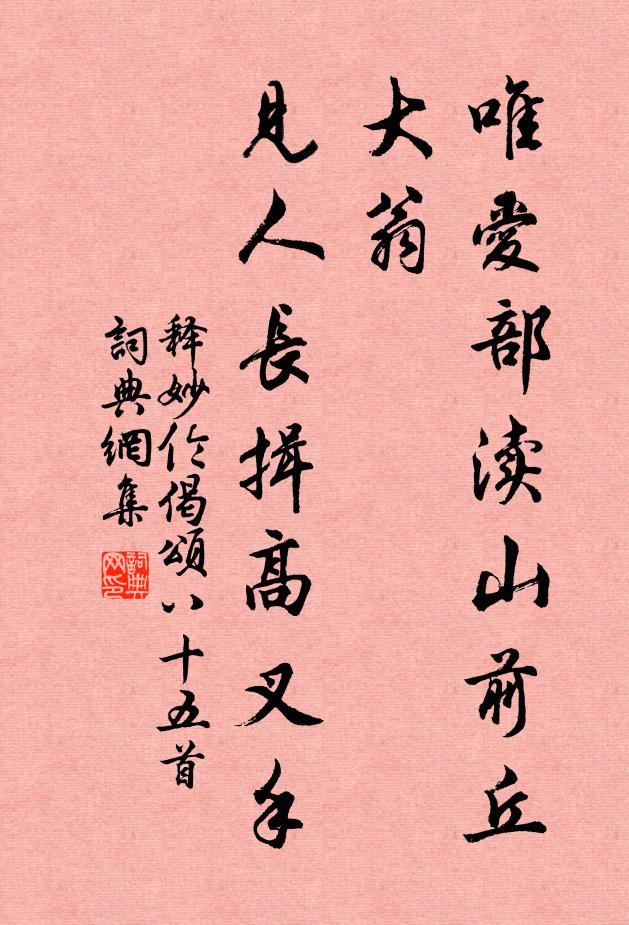 唯愛部渎山前丘
大翁
見人長揖高叉手
释妙伦偈頌八十五首
詞典網集
詞典网印